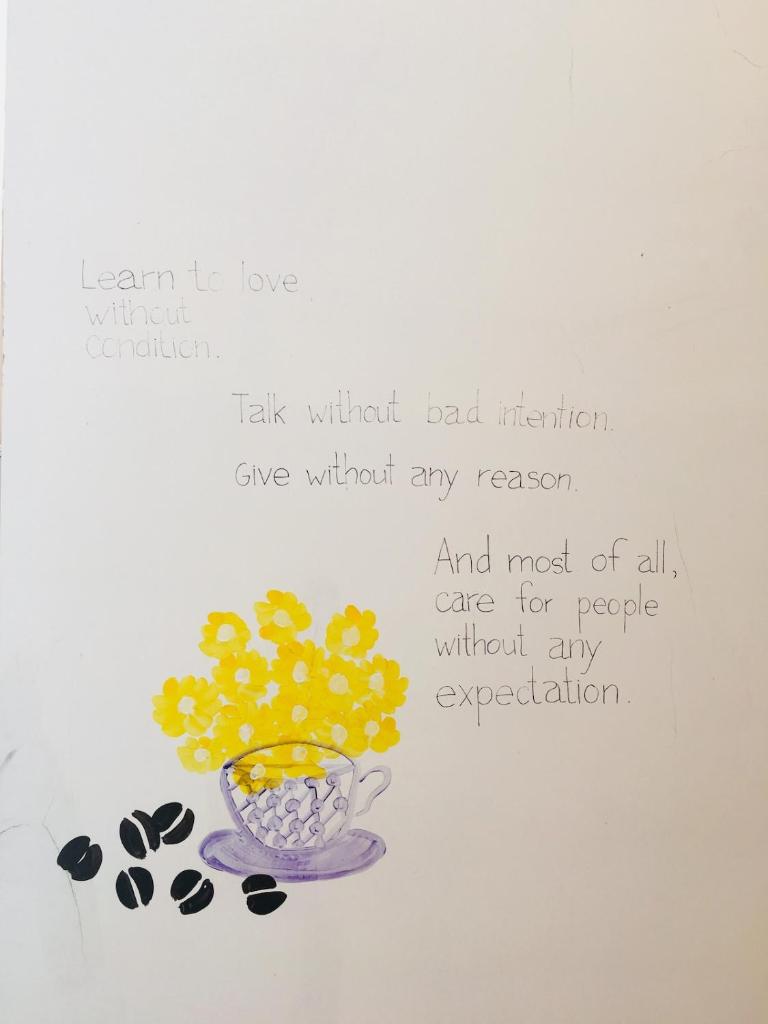 Learn to love
without
condition.
Talk without bad intention.
Give without any reason.
And most of all,
care for people
without any
expectation.